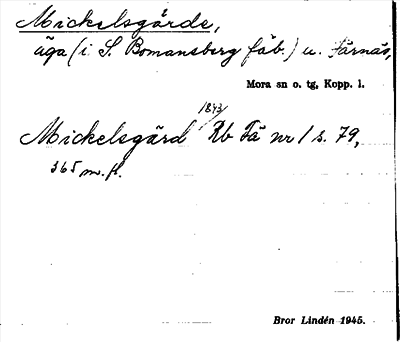 Mickelsgårde,
äga (i S. Bomansberg fäb.) u. Färnäs,
Mora sn o. tg, Kopp. l.
1843
Mickelsgård Rb Fä nr 1 s. 79,
365 m. fl.
Bror Lindén 1945.